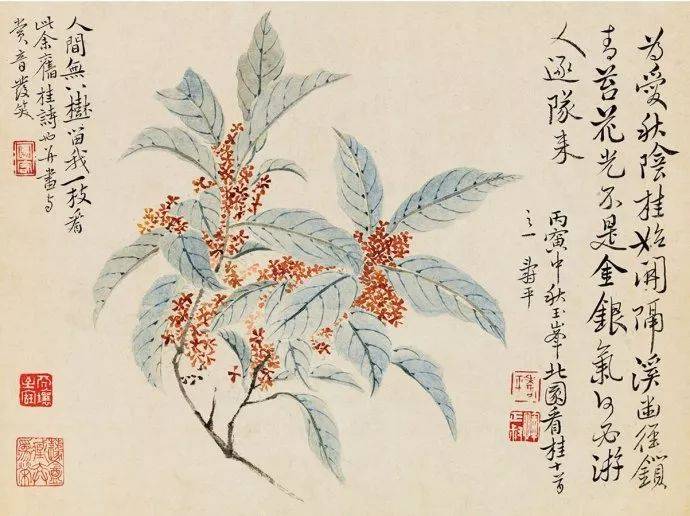 為愛秋陰桂始開隔溪幽徑鎖
青苔花光不是金銀氣何必游
人逐隊來
丙寅中秋玉峯北園看桂十首
之一 壽平
人間無八樹留我一枝看
此余舊桂詩也并畫與
賞音發笑